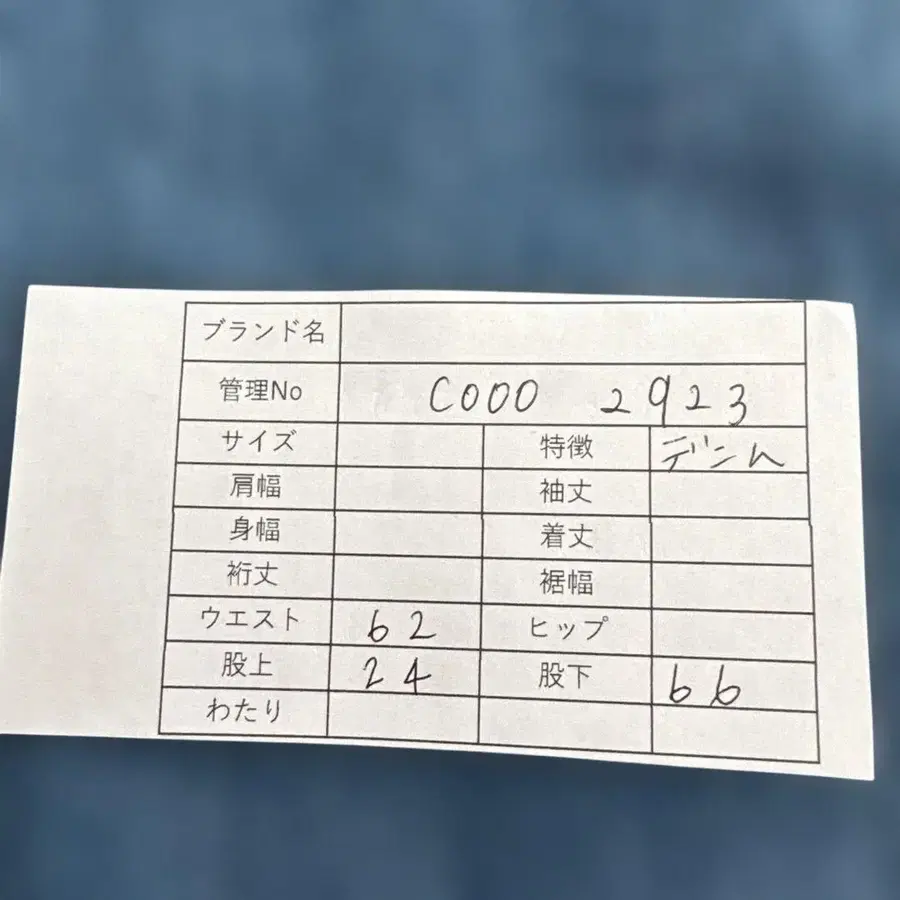 ブランド名
管理No C000 2923
サイズ 特徴 デニム
肩幅 袖丈
身幅 着丈
裄丈 裾幅
ウエスト 62 ヒップ
股上 24 股下 66
わたり